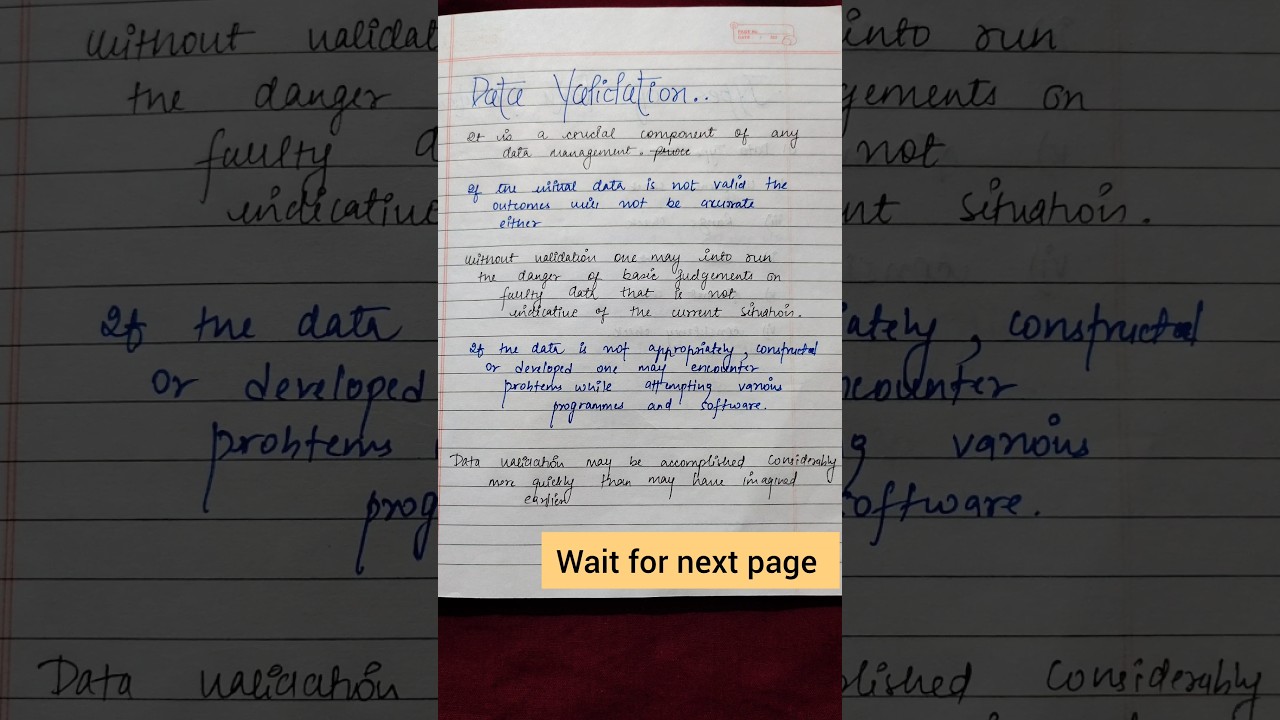 Data Validation..
It is a crucial component of any
data management.
If the initial data is not valid the
outcomes will not be accurate
either
without validation one may into run
the danger of basic judgements on
faulty data that is not
indicative of the current situation.
If the data is not appropriately, constructed
or developed one may encounter
problems while attempting various
programmes and software.
Data validation may be accomplished considerably
more quickly than may have imagined
earlier
Wait for next page